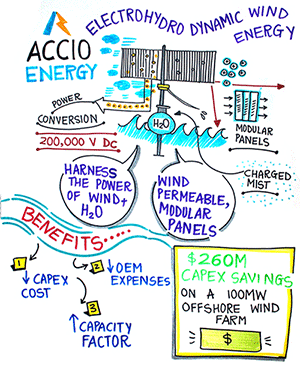 ACCIO
ENERGY
ELECTROHYDRO DYNAMIC WIND
ENERGY
POWER
CONVERSION
200,000 V DC
H2O
MODULAR
PANELS
CHARGED
MIST
HARNESS
THE POWER
OF WIND+
H2O
WIND
PERMEABLE,
MODULAR
PANELS
BENEFITS.....
1
↓ CAPEX
COST
2
↓ OEM
EXPENSES
3
↑ CAPACITY
FACTOR
$260M
CAPEX SAVINGS
ON A 100MW
OFFSHORE WIND
FARM
$